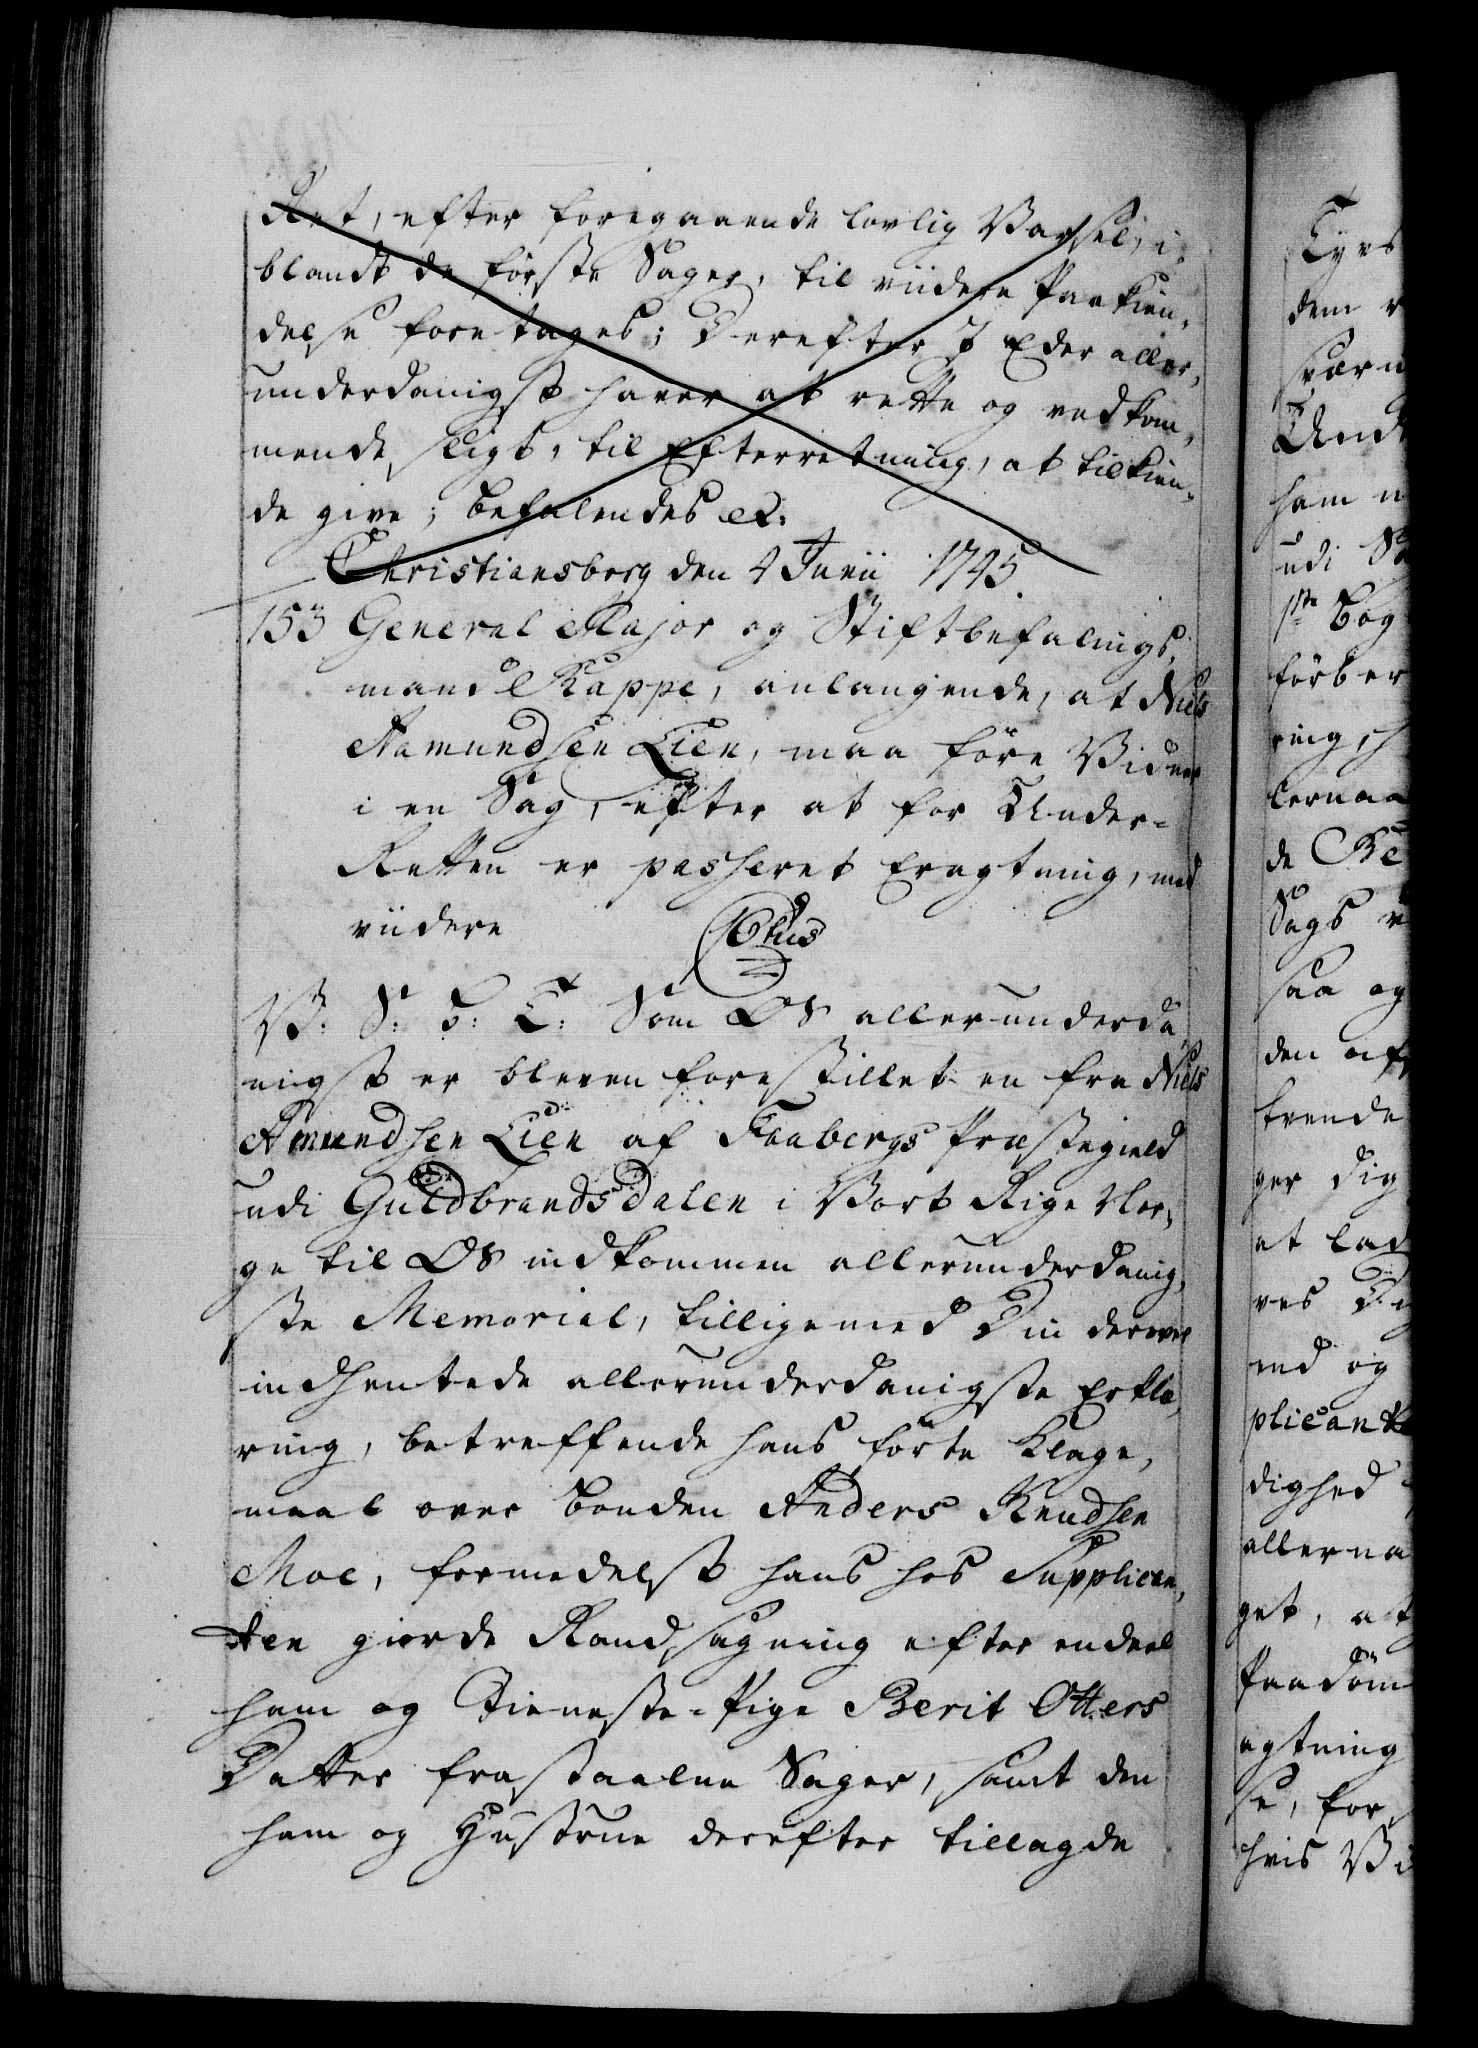 Ret, efter foregaaende lovlig Varsel, i-
blandt de förste Sager, til viidere Paakien-
delse foretages; Derefter I Eder aller-
underdanigst haver at rette og vedkom-
mende, sligt, til Efterretning, at tilkien-
de give; befalendes etc.
Christiansborg den 4 Junii 1745.
153 General Major og Stiftbefalings-
mand Rappe, anlangende, at Niels
Aamundsen Lien, maa före Vidner
i en Sag, efter at for Under-
Retten er passeret Eragtning, med
viidere
C6tus
V: S: G: T: Som OS allerunderda-
nigst er bleven forestillet en fra Niels
Amundsen Lien af Faabergs Præstegield
udi Guldbrandsdalen i Vort Rige Nor-
ge til OS indkommen allerunderdanig-
ste Memorial, tilligemed Din derover
indhentede allerunderdanigste Erklæ-
ring, betreffende hans förte Klage-
maal over bonden Anders Knudsen
Moe, formedelst hans hos Supplican-
ten giorde Randsagning efter endeel
ham og Tieneste-Pige Berit Otters
Datter frastaalne Sager, samt den
ham og Hustrue derefter tillagde
Tyvs
dem
ham
udi
1ste Bog
ring,
de
Sags
saa og
den
trende
ger Dig
at lad
end og
plicant
dighed
allerna
get, at
Paadöm
agtning
se, for
hvis